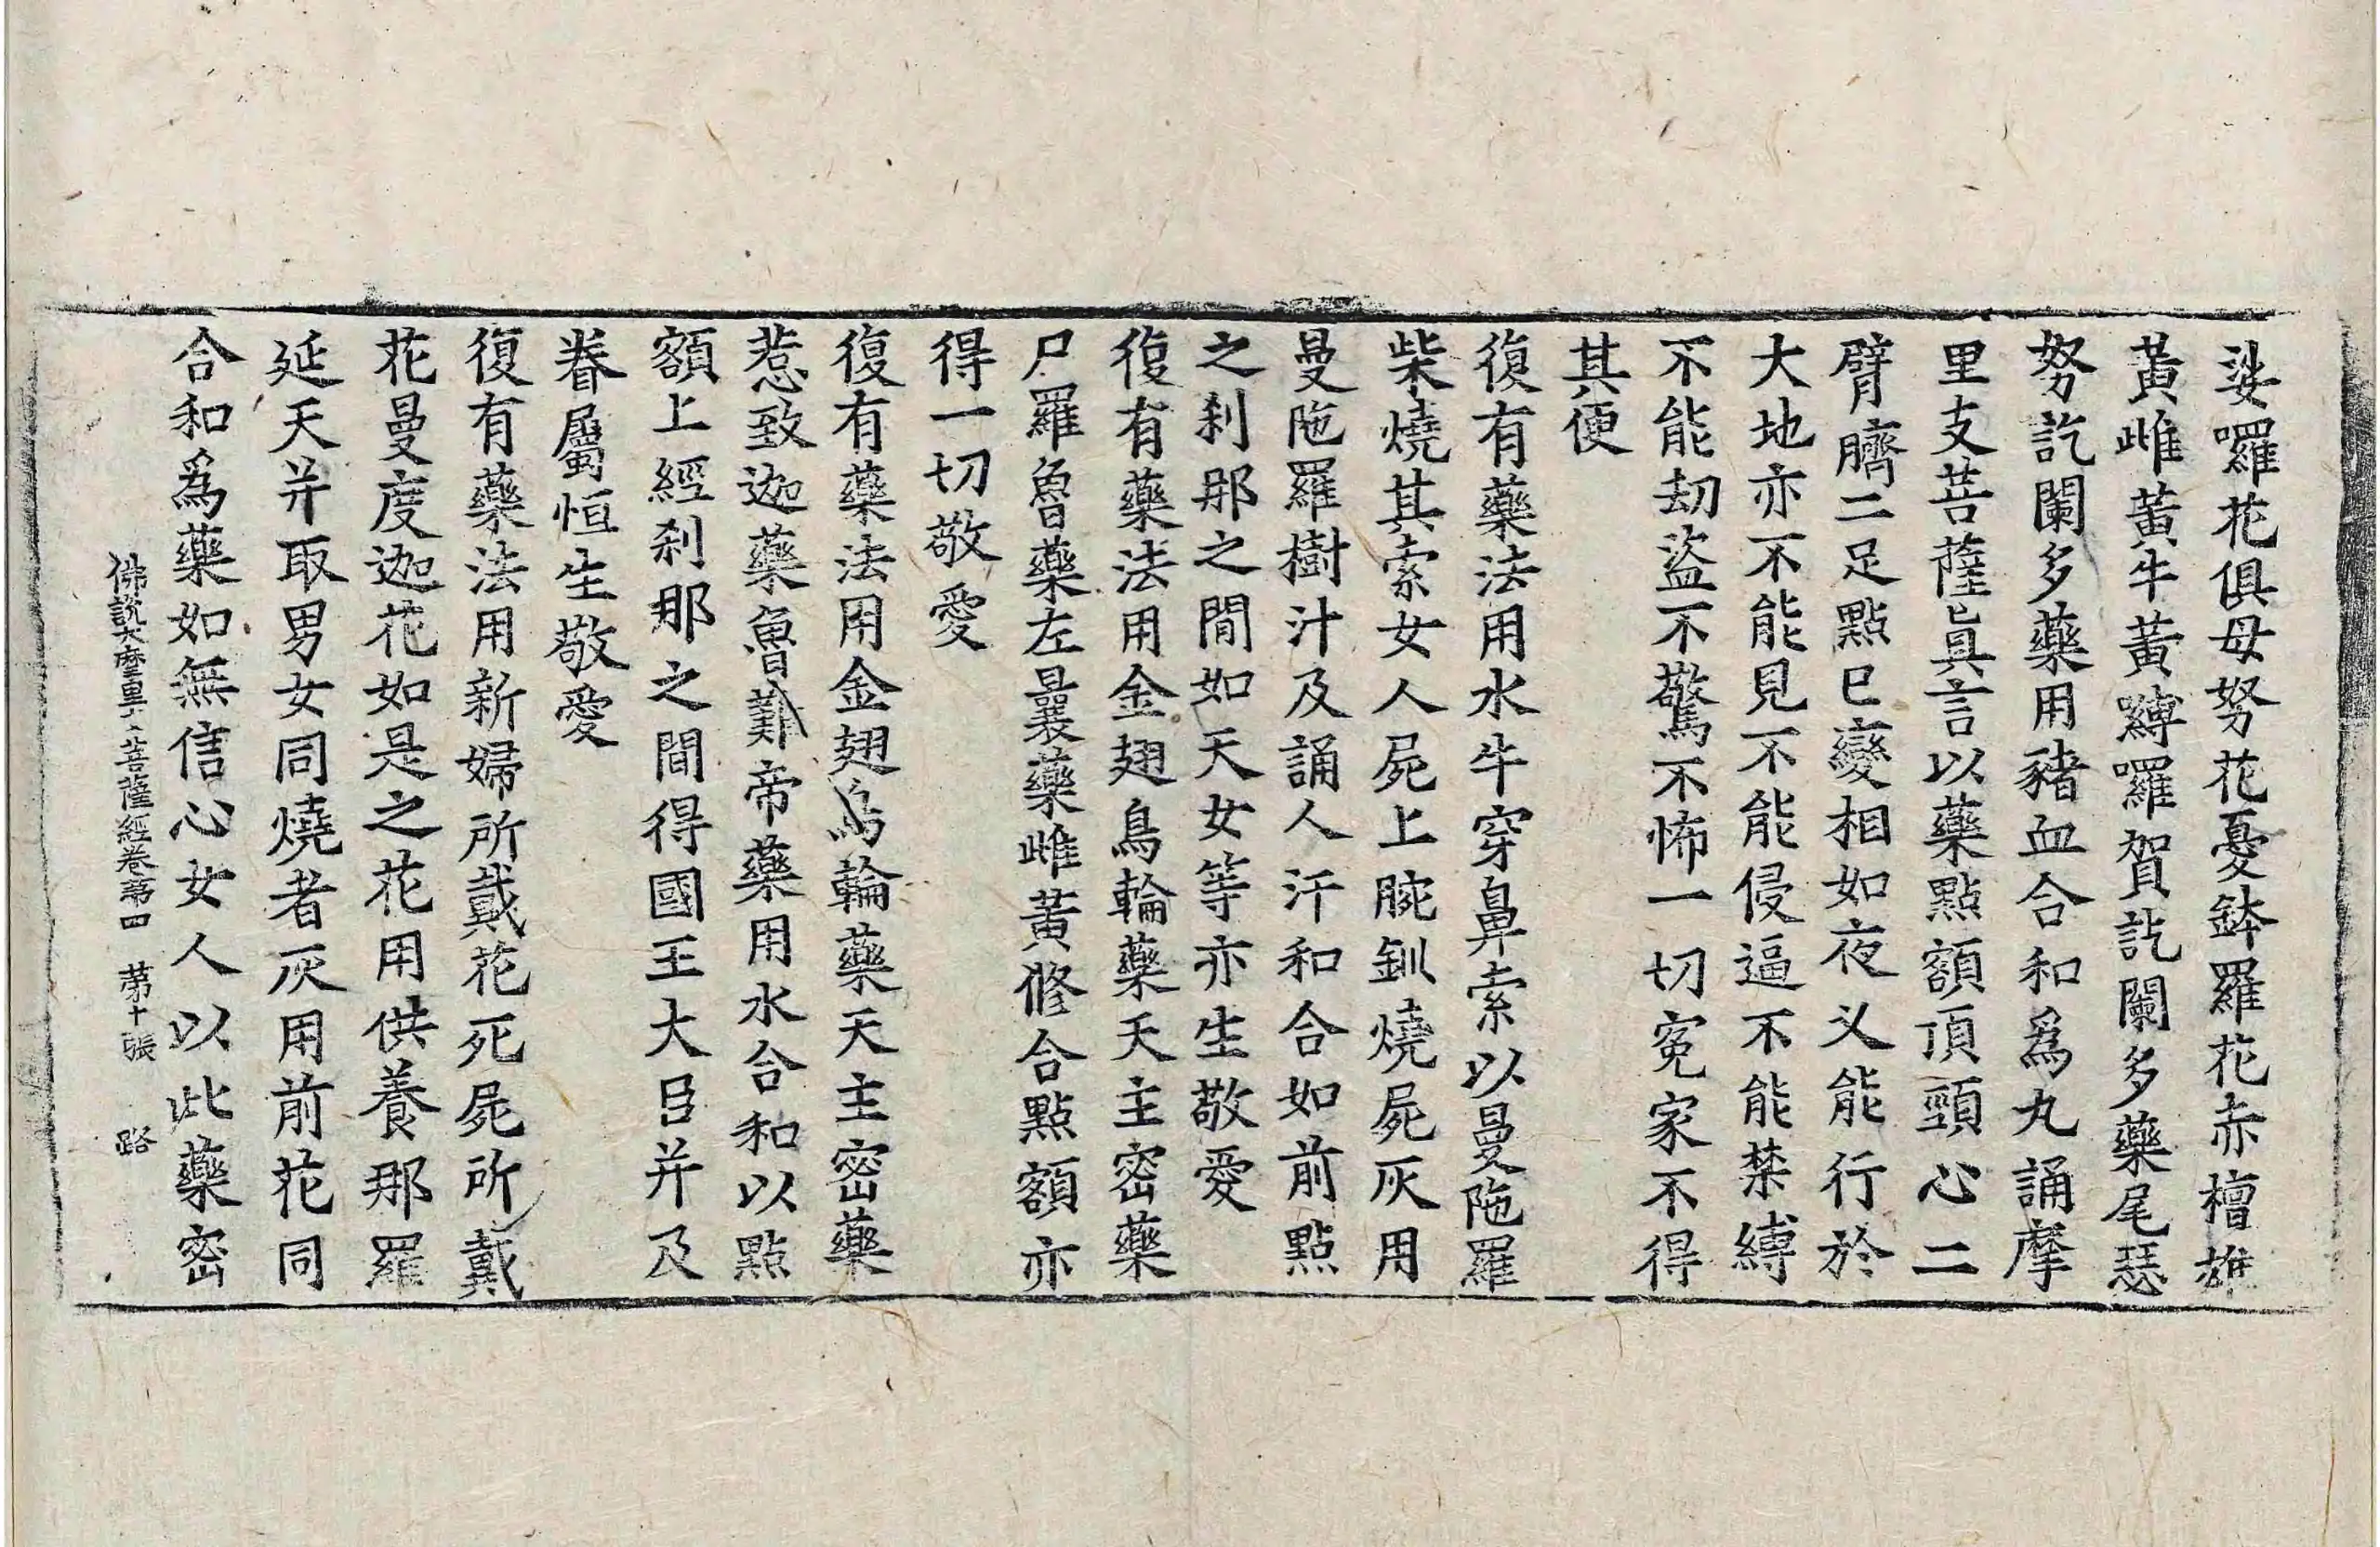 娑囉花俱母努花憂鉢羅花赤檀雄
黃雌黃牛黃嚩囉賀訖闌多藥尾瑟
努訖闌多藥用豬血合和為丸誦摩
里支菩薩真言以藥點額頂頸心二
臂臍二足點已變相如夜叉能行於
大地亦不能見不能侵逼不能禁縛
不能劫盜不驚不怖一切寃家不得
其便
復有藥法用水牛穿鼻索以曼陁羅
柴燒其索女人屍上腕釧燒屍灰用
曼陁羅樹汁及誦人汗和合如前點
之刹那之間如天女等亦生敬愛
復有藥法用金翅鳥輪藥天主密藥
尸羅魯藥左曩藥雌黃修合點額亦
得一切敬愛
復有藥法用金翅鳥輪藥天主密藥
惹致迦藥魯難帝藥用水合和以點
額上經刹那之間得國王大臣并及
眷屬恒生敬愛
復有藥法用新婦所戴花死屍所戴
花曼度迦花如是之花用供養那羅
延天并取男女同燒者灰用前花同
合和為藥如無信心女人以此藥密
佛說大摩里支菩薩經卷第四 第十張 路